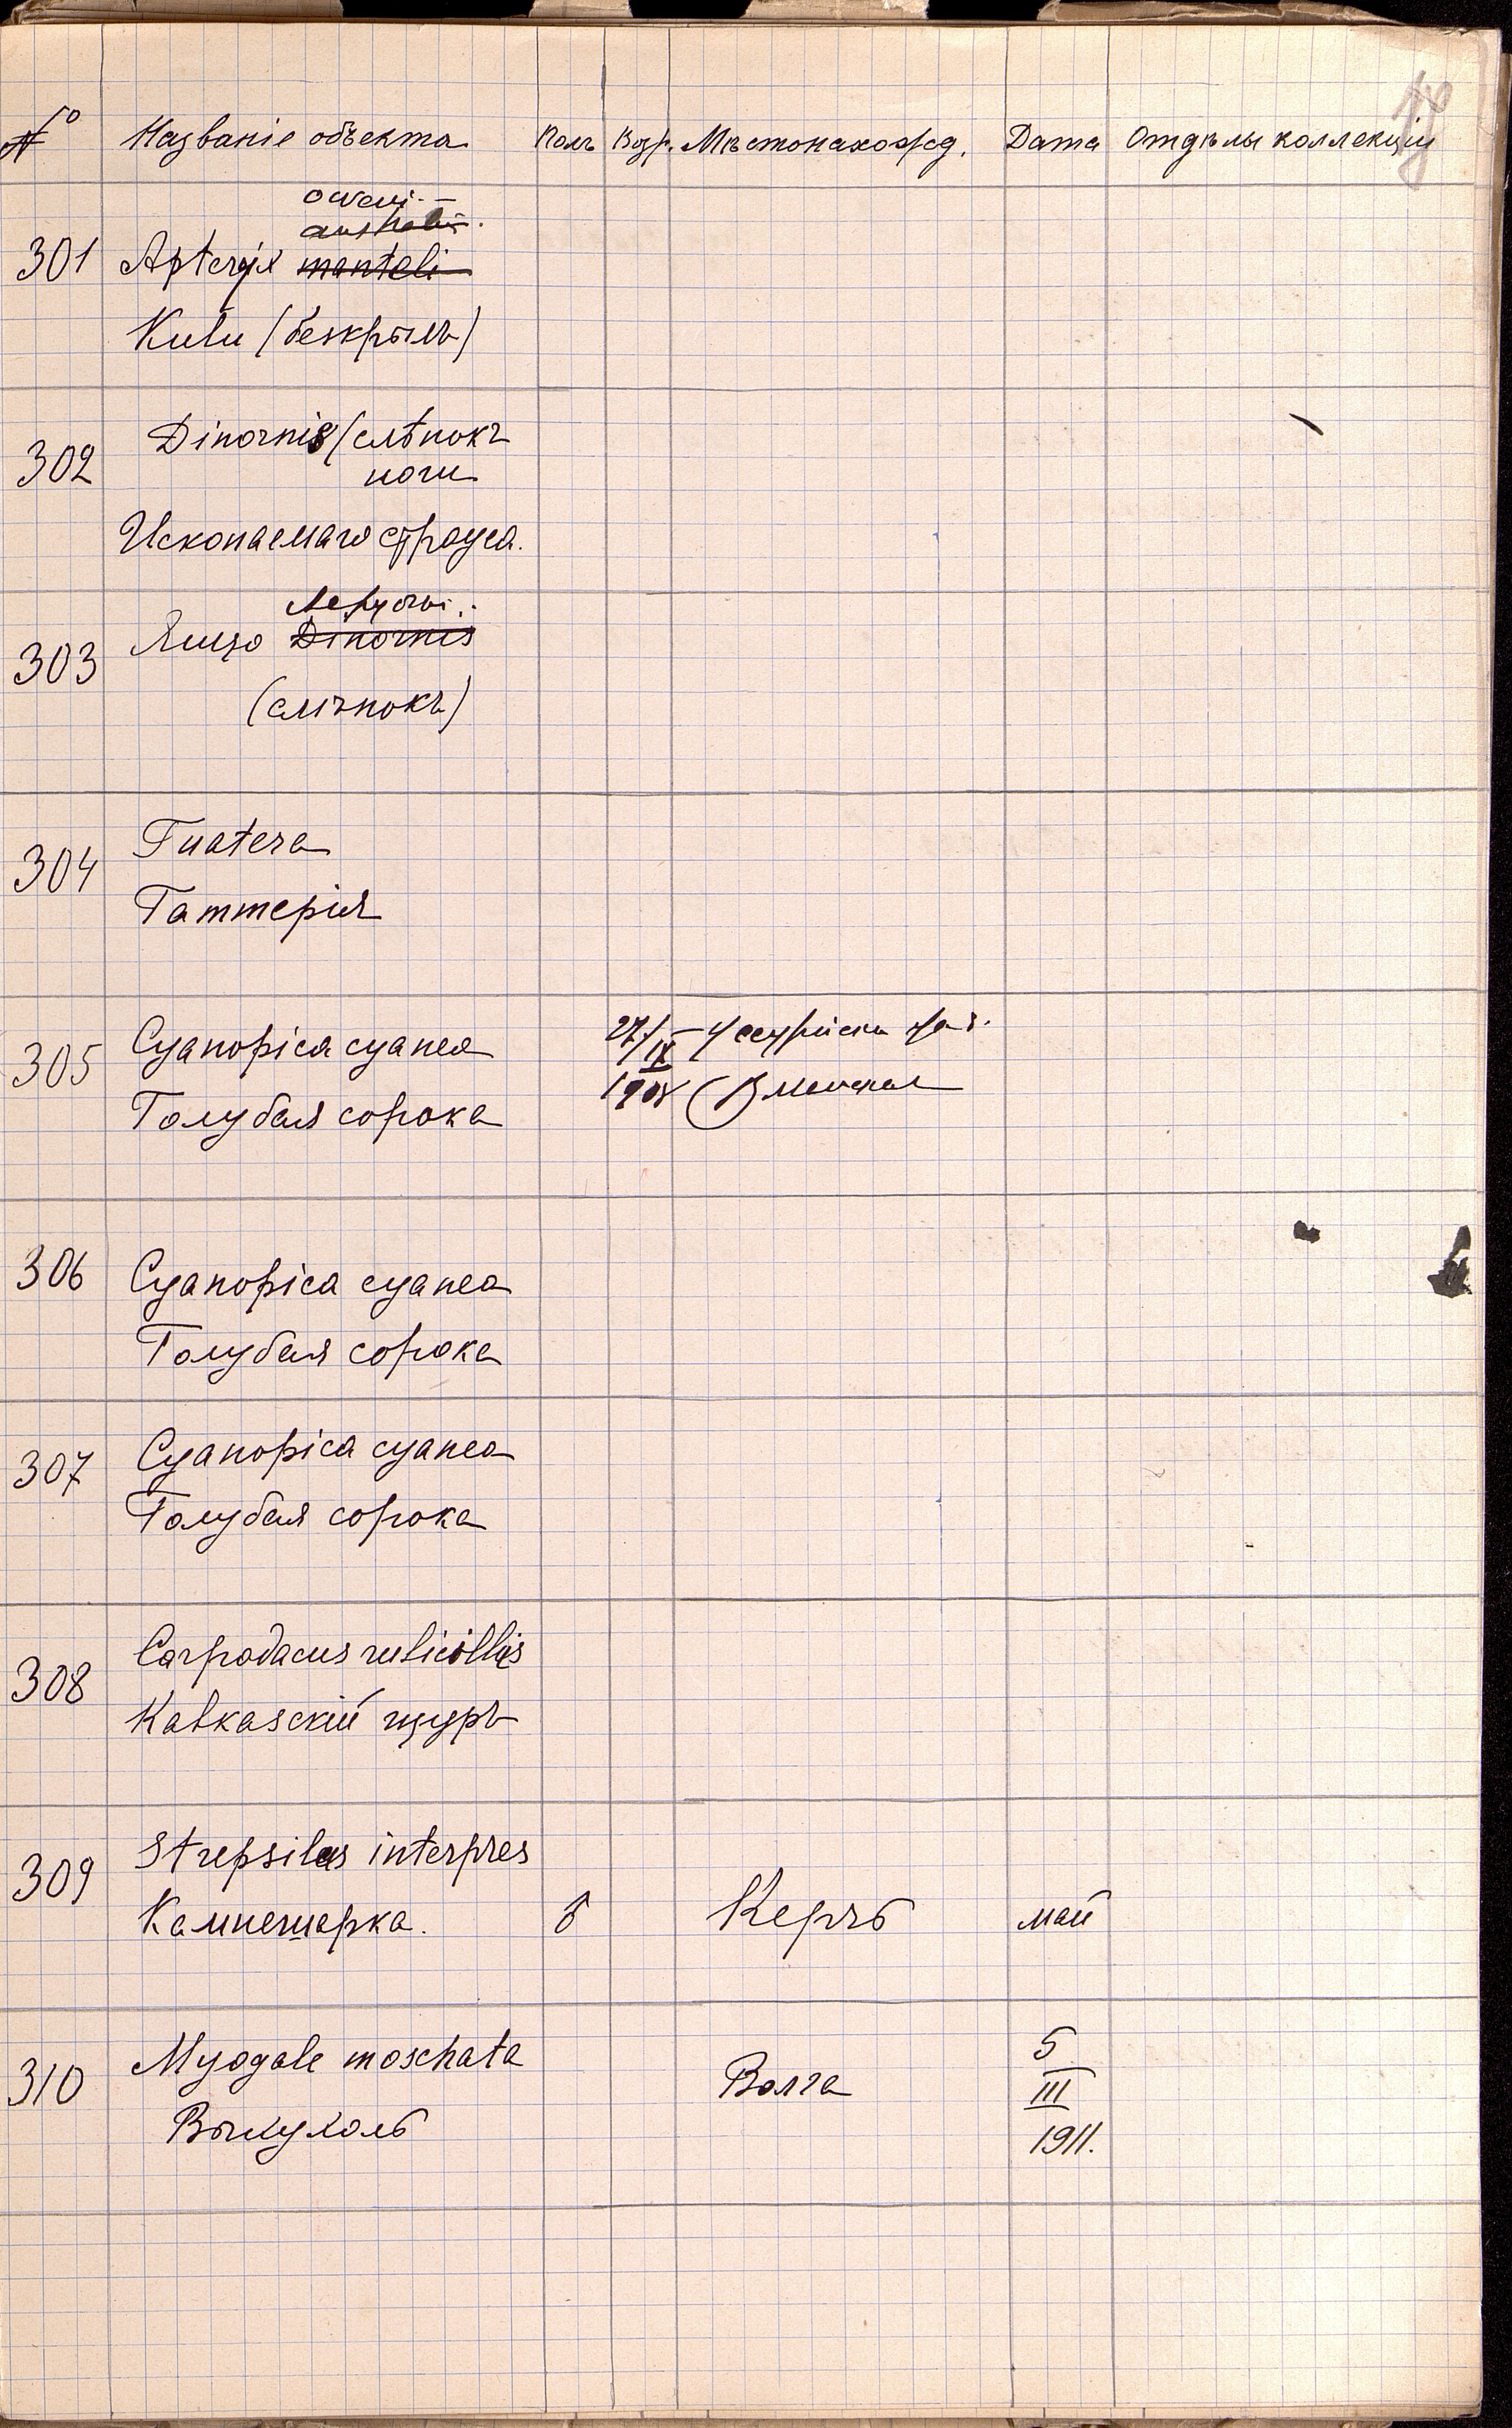 № Названіе объекта Полъ Возр. Мѣстонахожд. Дата Отдѣлы коллекціи
oweni
australis
301 Apteryx manteli
Киви (безкрылъ)
302 Dinornis (слѣпокъ
ноги
Ископаемаго страуса.
303 Яйцо Dinornis
(слѣпокъ)
304 Tuatera
Гаттерія
305 Cyanopica cyanea 27/IX Уссурійск.
Голубая сорока 1908
306 Cyanopica cyanea
Голубая сорока
307 Cyanopica cyanea
Голубая сорока
308 Carpodacus rubicillis
Кавказскій щуръ
309 Strepsilas interpres
Камнешарка. ♂ Керчь май
310 Myogale moschata Волга 5
III
Выхухоль 1911.